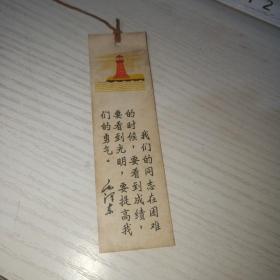 我们的同志在困难
的时候，要看到成绩，
要看到光明，要提高我
们的勇气。
毛泽东